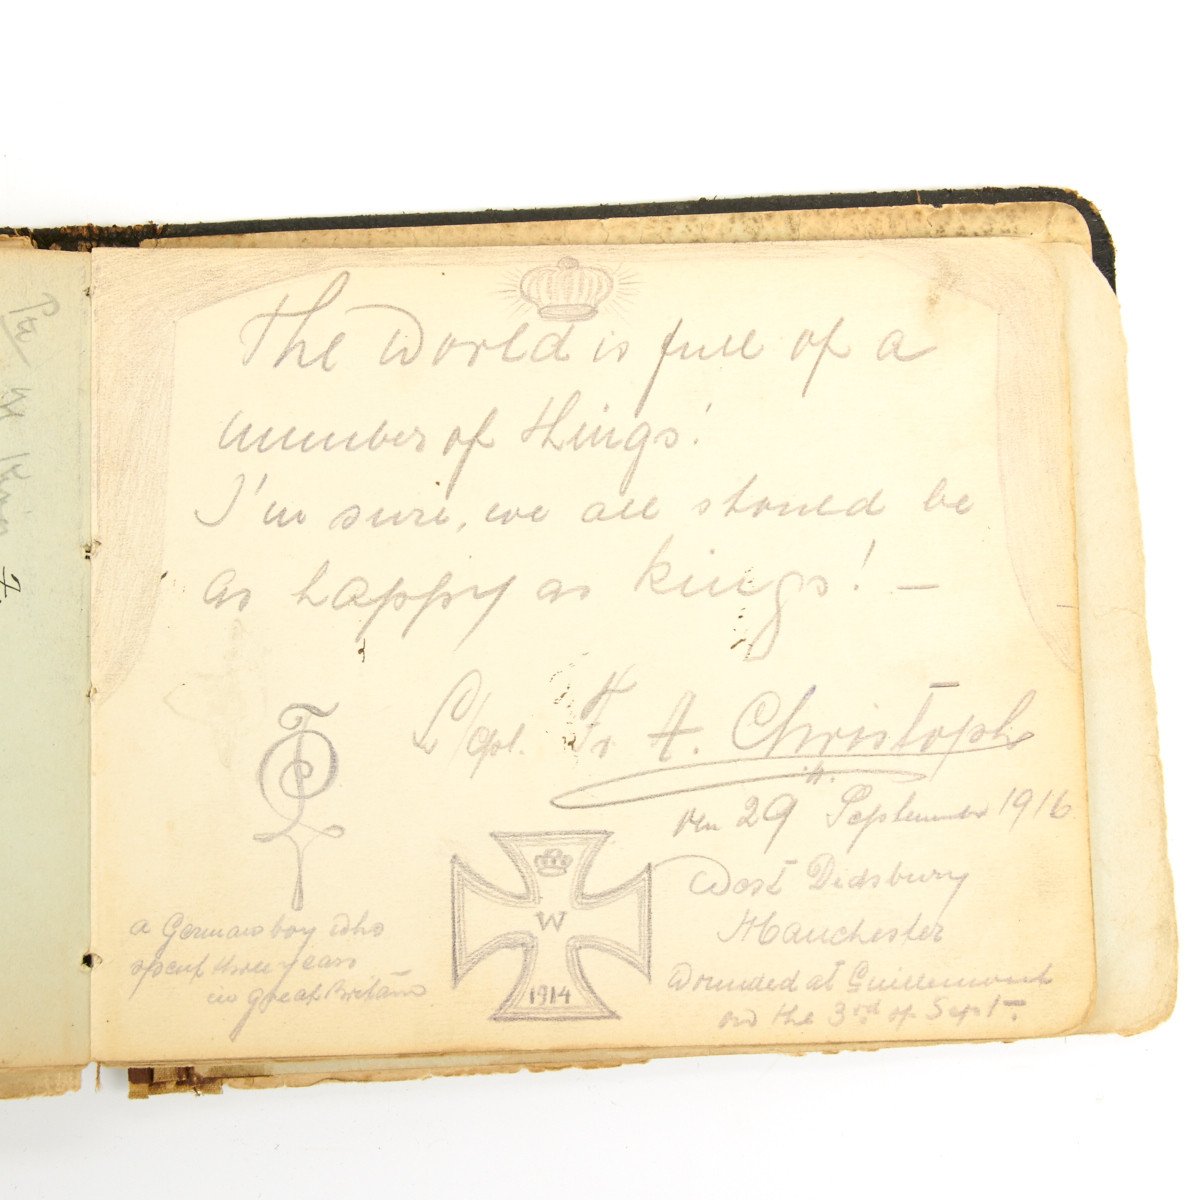 The world is full of a
number of things!
I'm sure, we all should be
as happy as kings! —
L/cpl. Fr. A. Christoph
den 29 September 1916
West Didsbury
Manchester
Wounded at Guillemont
on the 3rd of Sept.
a German boy who
spent three years
in great Britain
W
1914